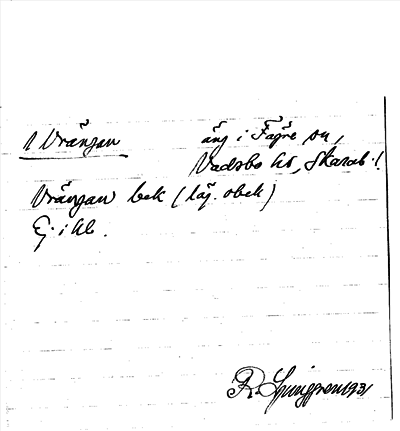 1 Vrängan äng i Fägre sn,
Vadsbo hd, Skarab. l.
Vrängan bek (läg. obek)
Ej i hd.
R. Ljunggren 1931